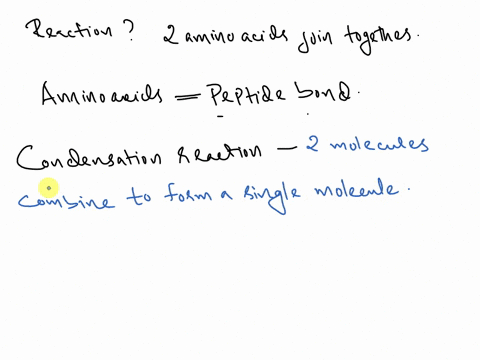 Reaction? 2 amino acids join together.
Aminoacids = Peptide bond.
Condensation reaction - 2 molecules
combine to form a single molecule.